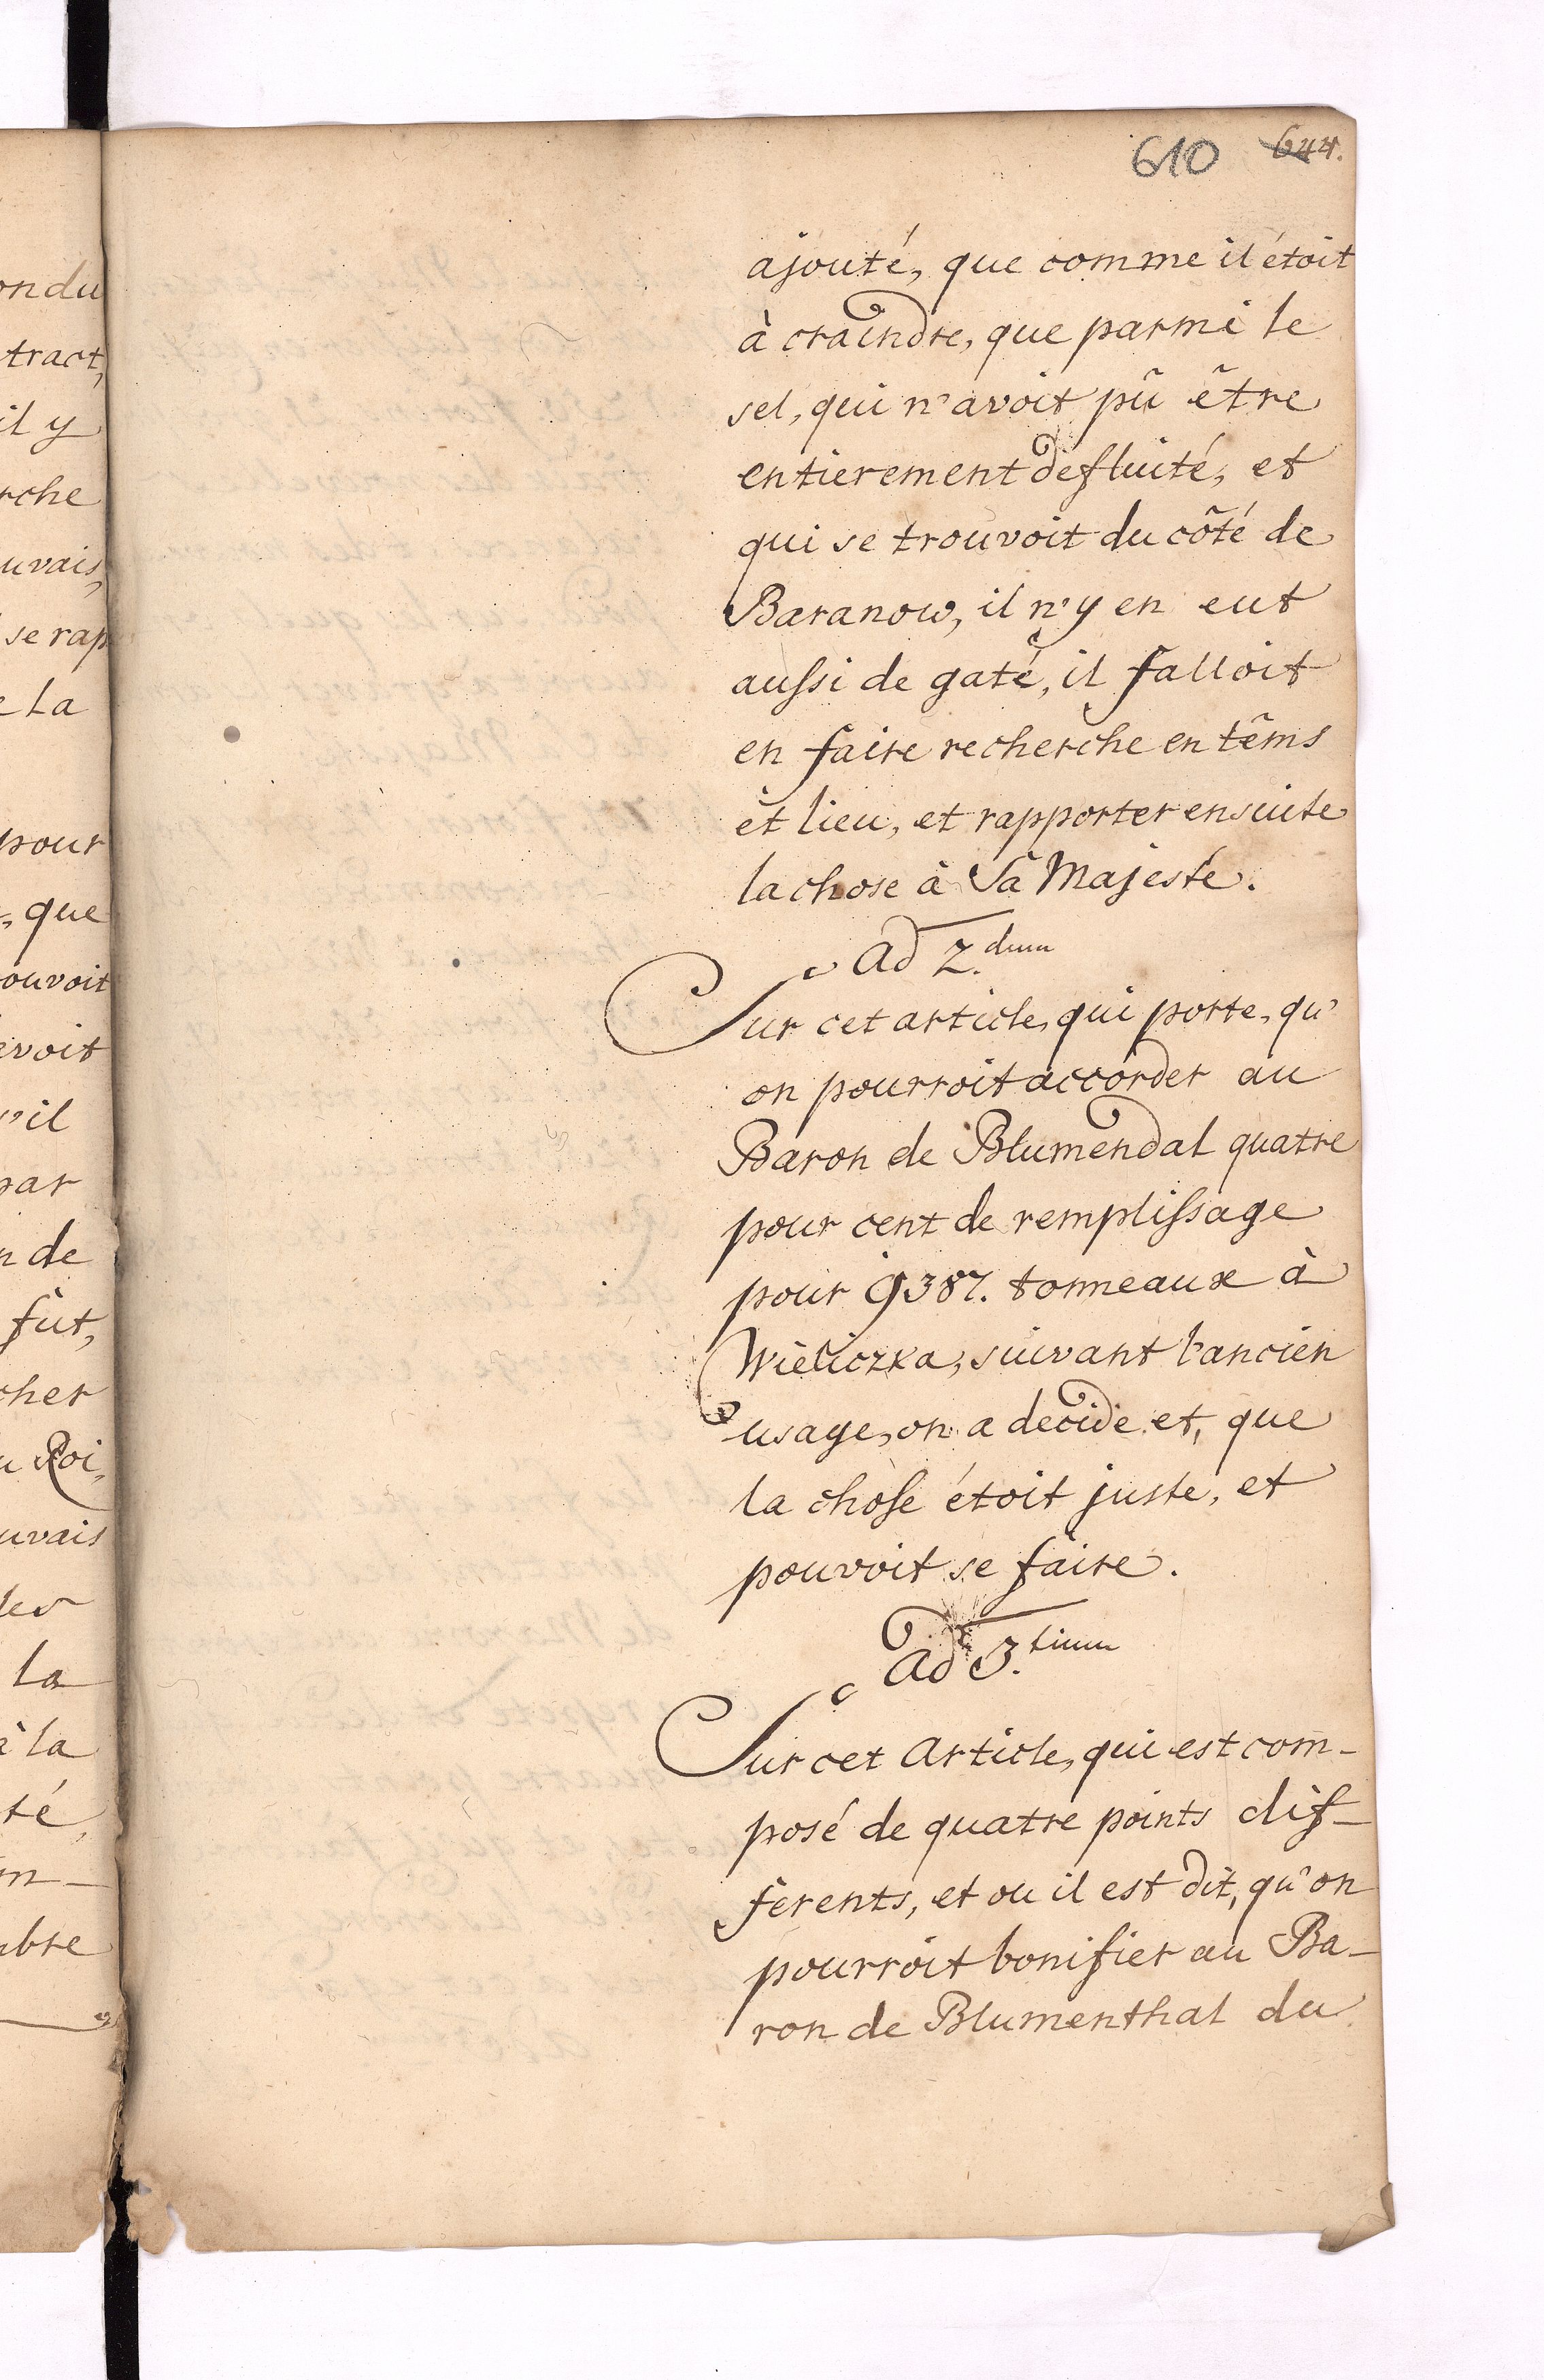 610 644.
ajouté, que comme il étoit
à craindre, que parmi le
sel, qui n'avoit pû être
entierement defluité, et
qui se trouvoit du côté de
Baranow, il n'y en eut
aussi de gaté, il falloit
en faire recherche en têms
et lieu, et rapporter ensuite
la chose à Sa Majesté.
Ad 2.dum
Sur cet article, qui porte, qu'
on pourroit accorder au
Baron de Blumendal quatre
pour cent de remplissage
pour 9387. tonneaux à
Wieliczka, suivant l'ancien
usage, on a decidé et, que
la chose étoit juste, et
pouvoit se faire.
Ad 3.tium
Sur cet Article, qui est com-
posé de quatre points dif-
ferents, et ou il est dit, qu'on
pourroit bonifier au Ba-
ron de Blumenthal du
ondu
tract,
il y
rche
uvais,
se rap
e la
pour
, que
ouvoit
evoit
'il
par
n de
fut,
cher
u Roi,
uvais
la
à la
té,
m-
mbre